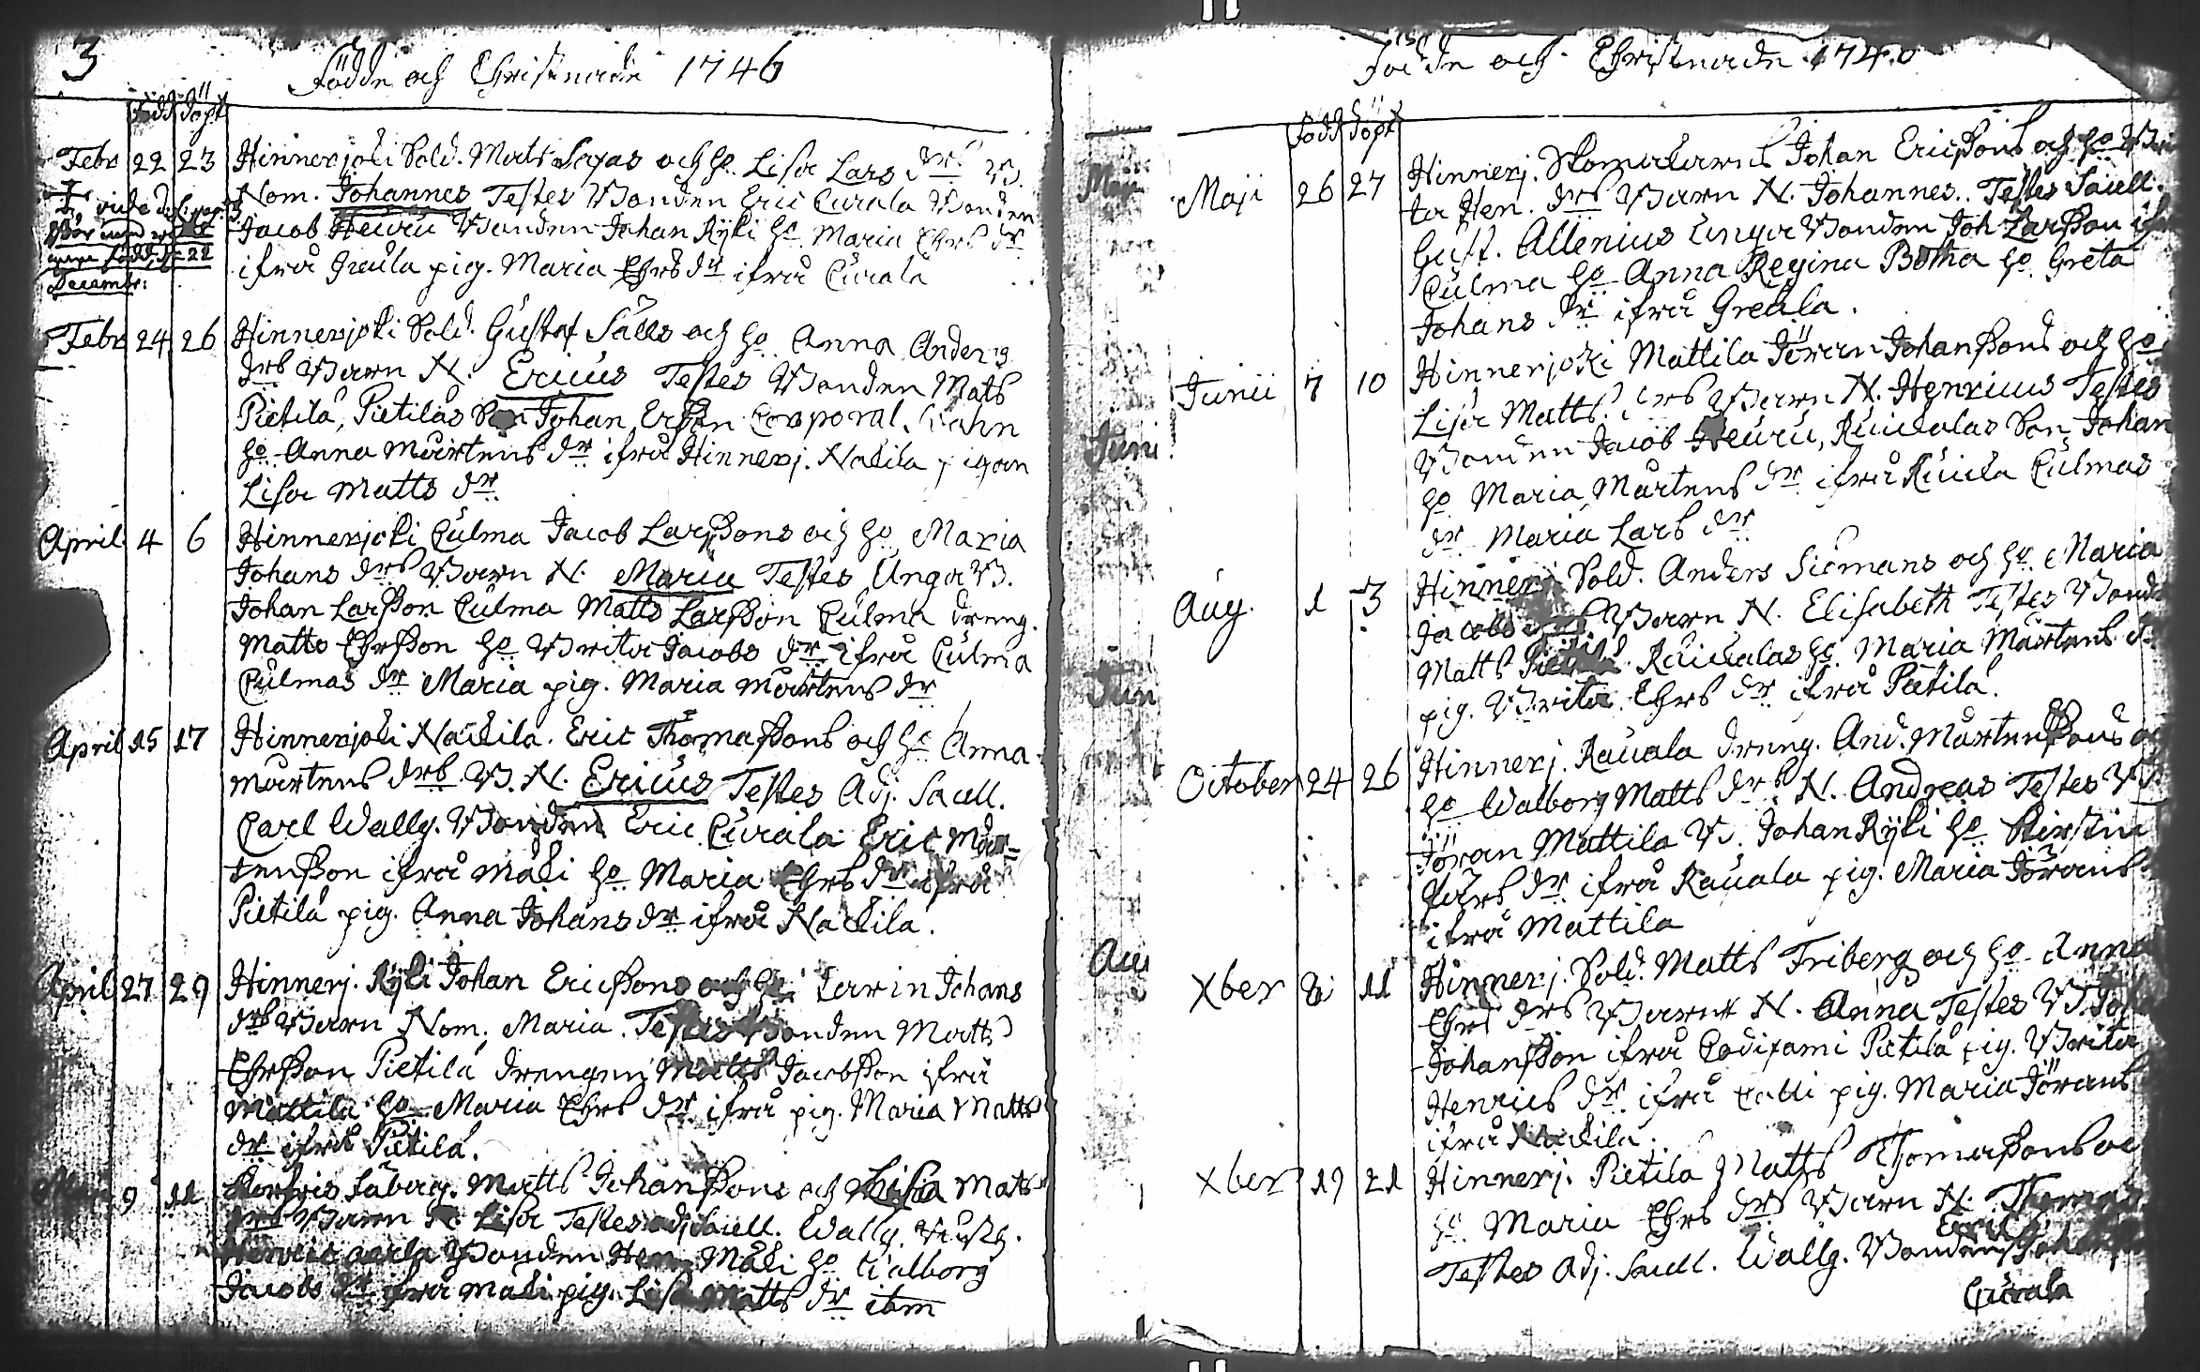 3
Födde och Christnade 1746
Född Döpt
Febr 22 23 Hinnerjoki Sold. Matts Sexas och ho Lisa Lars drs B.
Nom. Johannes Testes Bonden Eric Curala Bonden
Jacob Heuru Bonden Johan Ryki ho. Maria Ehrs dr
ifrå Greula pig. Maria Ehrs dr ifrå Curala
22
Decembr:
Febr 24 26 Hinnerjoki Sold. Gustaf Sälls och ho Anna Anders
drs Barn N. Ericus Testes Bonden Mats
Pietilä, Pietiläs Son Johan Ersson Corporal.
ho Anna Mårtens dr ifrå Hinnerj. Nackila pigan
Lisa Matts dr
April 4 6 Hinnerjoki Culma Jacob Larssons och ho Maria
Johans drs Barn N. Maria Testes Unga B.
Johan Larsson Culma Matts Larsson Culma dreng.
Matts Ehrsson ho Brita Jacobs dr ifrå Culma
Culmas dr Maria pig. Maria Mårtens dr
April 15 17 Hinnerjoki Nackila. Eric Thomassons och ho Anna
Mårtens drs B. N. Ericus Testes Adj. Sacell.
Carl Wallg. Bonden Eric Curala Eric Mår=
tensson ifrå Mäki ho Maria Ehrs dr ifrå
Pietilä pig. Anna Johans dr ifrå Nackila.
April 27 29 Hinnerj. Ryki Johan Ericssons och ho Carin Johans
drs Barn Nom. Maria. Testes Bonden Matts
Ehrsson Pietilä drengen Matts Jacobsson ifrå
Mattila ho Maria Ehrs dr ifrå pig. Maria Matts
dr ifrå Pietilä.
9 11 Matts Johanssons och Lisa Mats
drs Barn N. Lisa Testes adj Sacell. Wallg.
Bonden Hen. Mäki ho Walborg
Jacobs dr ifrå Mäki pig. Lisa Matts dr ibm
Födde och Christnade 174
Född Döpt
Maji 26 27 Hinnerj. Skomakarens Johan Ericssons och ho Bri
ta Hen. drs Barn N. Johannes. Testes Sacell.
Gust. Allenius Unga Bonden Joh Larsson ifrå
Culma ho Anna Regina Botha ho Greta
Johans dr ifrå Greula.
Junii 7 10 Hinnerjoki Mattila Jöran Johanssons och ho
Lisa Matts drs Barn N. Henricus Testes
Bonden Jacob Heuru, Rauvalas Son Johan
ho Maria Mårtens dr ifrå Culmas
dr Maria Lars dr
Aug. 1 3 Hinnerj. Sold. Anders Siömans och ho Maria
Jacobs drs Barn N. Elisabeth Testes Bond
Matts Pietilä. ho Maria Mårtens d
pig. Brita Ehrs dr ifrå Pietilä.
October 24 26 Hinnerj. Rauala dreng. And. Mårtenssons o
ho Walborg Matts drs N. Andreas Testes B
Jöran Mattila B. Johan Ryki ho Kirstin
Lars dr ifrå Rauala pig. Maria Jörans
ifrå Mattila
Xber 8 11 Hinnerj. Sold. Matts Friberg och ho Anna
Ehrs drs Barn N. Anna Testes B. Joh
Johansson ifrå Pietilä pig. Brita
Henrics dr ifrå pig. Maria Jörans
ifrå Nackila.
Xber 19 21 Hinnerj. Pietilä Matts Thomassons oc
ho Maria Ehrs drs Barn N. Thomas
Testes Adj. Sacell. Wallg. Bonden Eric
Curala